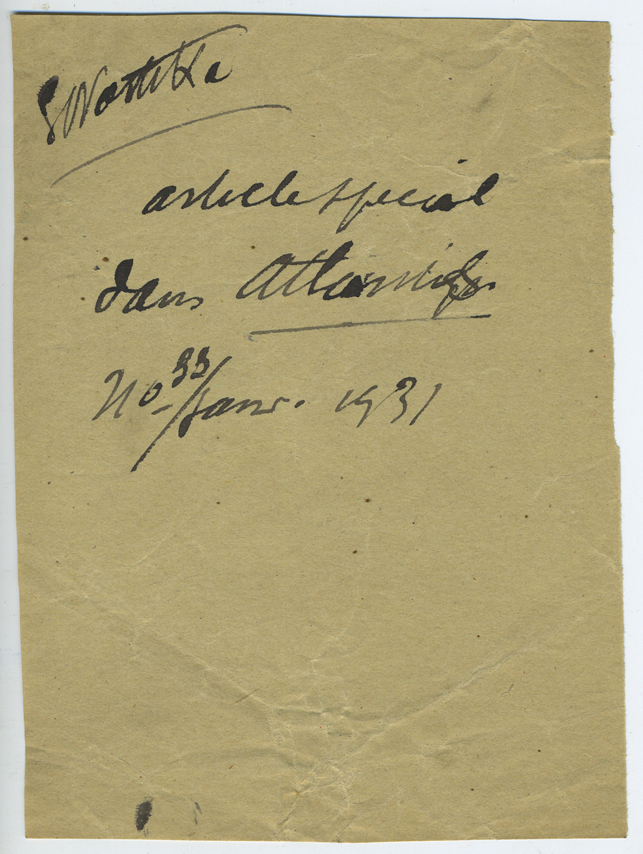 Swastika
article special
dans Atlantis
No 33/Janv. 1931